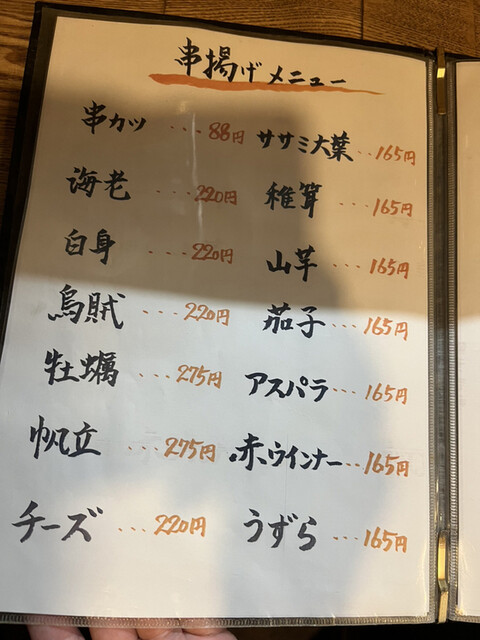 串揚げメニュー
串カツ ...88円
海老 ...220円
白身 ...220円
烏賊 ...220円
牡蠣 ...275円
帆立 ...275円
チーズ ...220円
ササミ大葉...165円
椎茸 ...165円
山芋 ...165円
茄子...165円
アスパラ...165円
赤ウインナー...165円
うずら ...165円